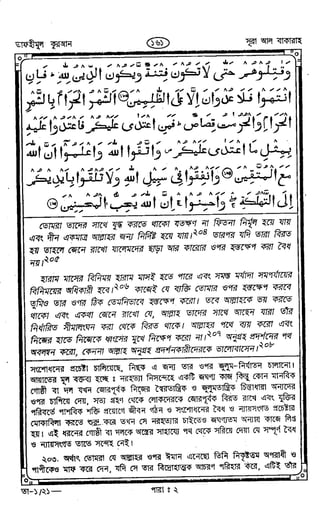 তাফহীমুল কুরআন ১৬১ সূরা আল বাকারাহ
وَقٰتِلُوْهُمْ حَتّٰى لَا تَكُوْنَ فِتْنَةٌ وَّيَكُوْنَ الدِّيْنُ لِلّٰهِ ؕ فَاِنِ
انْتَهَوْا فَلَا عُدْوَانَ اِلَّا عَلَى الظّٰلِمِيْنَ ⑲ اَلشَّهْرُ الْحَرَامُ بِالشَّهْرِ
الْحَرَامِ وَالْحُرُمٰتُ قِصَاصٌ ؕ فَمَنِ اعْتَدٰى عَلَيْكُمْ فَاعْتَدُوْا عَلَيْهِ
بِمِثْلِ مَا اعْتَدٰى عَلَيْكُمْ ۪ وَاتَّقُوا اللّٰهَ وَاعْلَمُوْۤا اَنَّ اللّٰهَ
مَعَ الْمُتَّقِيْنَ ⑲ وَاَنْفِقُوْا فِيْ سَبِيْلِ اللّٰهِ وَلَا تُلْقُوْا بِاَيْدِيْكُمْ
اِلَى التَّهْلُكَةِ ۚۛ وَاَحْسِنُوْا ۚۛ اِنَّ اللّٰهَ يُحِبُّ الْمُحْسِنِيْنَ
তোমরা তাদের সাথে যুদ্ধ করতে থাকো যতক্ষণ না ফিতনা নির্মূল হয়ে যায়
এবং দীন একমাত্র আল্লাহর জন্য নির্দিষ্ট হয়ে যায়।২০৪ তারপর যদি তারা বিরত
হয় তাহলে জেনে রাখো যালেমদের ছাড়া আর কারোর ওপর হস্তক্ষেপ করা বৈধ
নয়।২০৫
হারাম মাসের বিনিময় হারাম মাসই হতে পারে এবং সমস্ত মর্যাদা সমপর্যায়ের
বিনিময়ের অধিকারী হবে।২০৬ কাজেই যে ব্যক্তি তোমার ওপর হস্তক্ষেপ করবে
তুমিও তার ওপর ঠিক তেমনিভাবে হস্তক্ষেপ করো। তবে আল্লাহকে ভয় করতে
থাকো এবং একথা জেনে রাখো যে, আল্লাহ তাদের সাথে আছেন যারা তাঁর
নির্ধারিত সীমালংঘন করা থেকে বিরত থাকে। আল্লাহর পথে ব্যয় করো এবং
নিজের হাতে নিজেকে ধ্বংসের মুখে নিক্ষেপ করো না।২০৭ অনুগ্রহ প্রদর্শনের পথ
অবলম্বন করো, কেননা আল্লাহ অনুগ্রহ প্রদর্শনকারীদেরকে ভালোবাসেন।২০৮
সংশোধনের প্রচেষ্টা চালিয়েছে, নিছক এ জন্য তার ওপর জুলুম-নির্যাতন চালানো।
গোষ্ঠী বা দল যখন জোরপূর্বক নিজের স্বৈরতান্ত্রিক ও জুলুমতান্ত্রিক চিন্তাধারা অন্যদের
ওপর চাপিয়ে দেয়, সত্য গ্রহণ থেকে লোকদেরকে জোরপূর্বক বিরত রাখে এবং যুক্তির
পরিবর্তে পাশবিক শক্তি প্রয়োগে জীবন গঠন ও সংশোধনের বৈধ ও ন্যায়সংগত প্রচেষ্টার
মোকাবিলা করতে শুরু করে তখন সে নরহত্যার চাইতেও জঘন্যতম অন্যায় কাজে লিপ্ত
হয়। এই ধরনের গোষ্ঠী বা দলকে অস্ত্রের সাহায্যে পথ থেকে সরিয়ে দেয়া যে সম্পূর্ণ বৈধ
ও ন্যায়সংগত তাতে সন্দেহ নেই।
২০৩. অর্থাৎ তোমরা যে আল্লাহর ওপর ঈমান এনেছো তিনি নিকৃষ্টতম অপরাধী ও
পাপীকেও মাফ করে দেন, যদি সে তার বিদ্রোহাত্মক আচরণ পরিহার করে, এটিই তাঁর
তা-১/২১— পারা ঃ ২